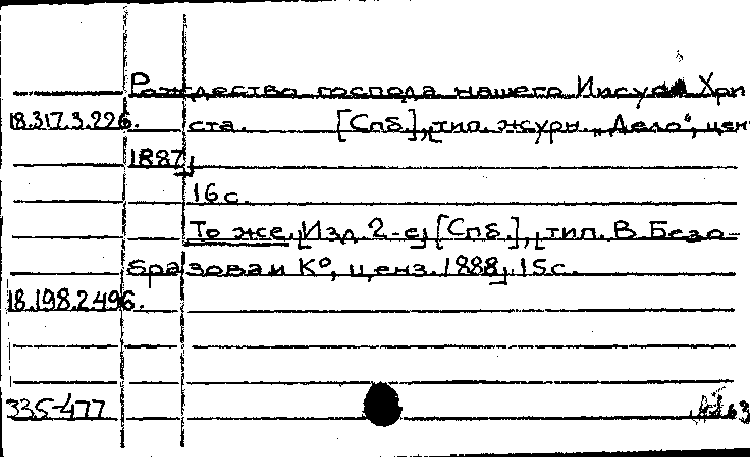 Рождество господа нашего Иисуса Хри
18.317.3.226. ста. [Спб.], [тип. журн. „Дело“, ценз.
1887]
16 с.
То же. [Изд. 2-е] [Спб.], [тип. В. Безо-
бразова и К°, ценз. 1888]. 15 с.
18.198.2.496.
335-477 63